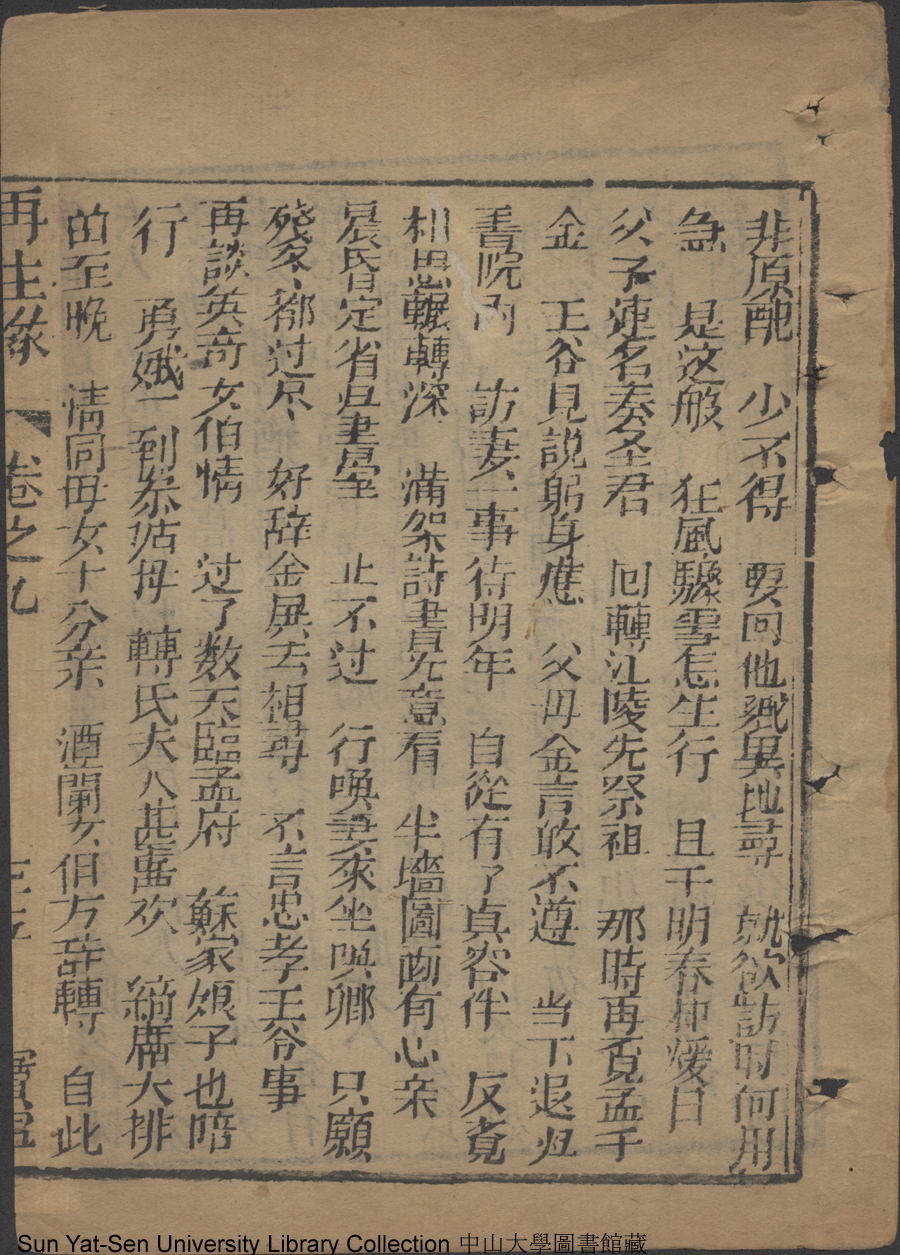 非原配　少不得　要向他鄉異地尋　就欲訪时何用
急　是这般　狂風驟雪怎生行　且于明春和煖日
父子連名奏圣君　囘轉江陵先祭祖　那時再覓孟千
金　王爷見説躬身應　父母金言敢不遵　当下退归
書院内　訪妻一事待明年　自從有了真容伴　反覚
相思輾轉深　滿架詩書無意看　半墻圖画有心亲
晨昏定省归書室　止不过　行喚妻來坐喚卿　只願
殘冬都过尽　好辞金屏去相尋　不言忠孝王爷事
再談英奇女伯情　过了数天臨孟府　蘇家娘子也暗
行　勇娥一到叅姑母　轉氏夫人甚喜欢　綺席大排
的至晚　情同母女十分亲　酒闌女伯方辞轉　自此
再生緣　卷之九